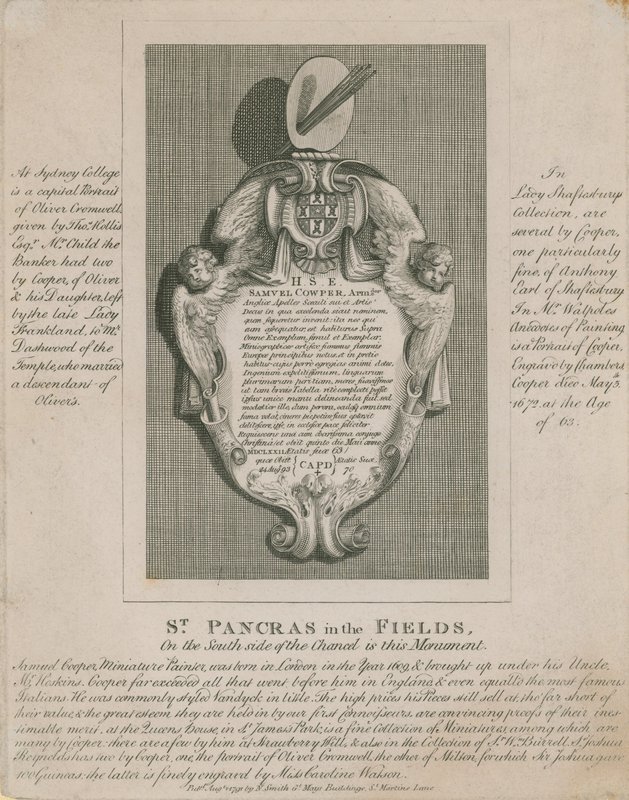 At Sydney College
is a capital Portrait
of Oliver Cromwell,
given by Thos. Hollis
Esqr. Mr. Child the
Banker had two
by Cooper, of Oliver
& his Daughter, left
by the late Lady
Frankland, to Mr.
Dashwood of the
Temple, who married
a descendant of
Oliver's.
H S E
SAMVEL COWPER, Armiger
Angliæ Apelles Seculi sui et Artis
Decus in qua excelenda sicut neminem,
quem sequeretur invenit: ita nec qui
eum assequatur, est habiturus Supra
Omne Exemplum simul et Exemplar,
Minio graphices artifex summus summis
Europæ principibus notus, et in pretio
habitus cujus porro egregias animi dotes,
Ingenium expolitissimum, linguarum
plurimarum peritiam, mores suavissimos
ut tam brevis Tabella rite complecti posset
ipsius unica manu delineanda fuit sed
modestior ille, dum per ora, oculosq omnium
fama volat, cineres hic potius suos optavit
delitescere, ipse in ecclesiæ pace feliciter
Requiescens una cum charissima conjuge
Christina; et obiit quinto die Maii anno
MDCLXXII Ætatis suæ 63
quæ Obiit
24 Augt 93
CAPD
Ætatis Suæ
70
In
Lady Shaftesburys
Collection, are
several by Cooper,
one particularly
fine, of Anthony
Earl of Shaftesbury
In Mr. Walpoles
Anecdotes of Painting
is a Portrait of Cooper,
Engravd by Chambers.
Cooper died May 5th
1672. at the Age
of 63.
ST. PANCRAS in the FIELDS,
On the South side of the Chancel is this Monument.
Samuel Cooper, Miniature Painter, was born in London in the Year 1609, & brought up under his Uncle,
Mr. Hoskins. Cooper far exceeded all that went before him in England & even equall'd the most famous
Italians. He was commonly styled Vandyck in little. The high prices his Pieces still sell at, tho' far short of
their value, & the great esteem they are held in by our first Connoisseurs, are convincing proofs of their ines-
timable merit, at the Queens House, in St. James's Park, is a fine Collection of Miniatures, among which are
many by Cooper. there are a few by him at Strawberry Hill, & also in the Collection of Sr. W. Burrell. Sr. Joshua
Reynolds has two by Cooper, one, the portrait of Oliver Cromwell, the other of Milton, for which Sir Joshua gave
100 Guineas. the latter is finely engraved by Miss Caroline Watson.
Publd. Augt. 1 1791 by N. Smith Gt. Mays Buildings, St. Martins Lane